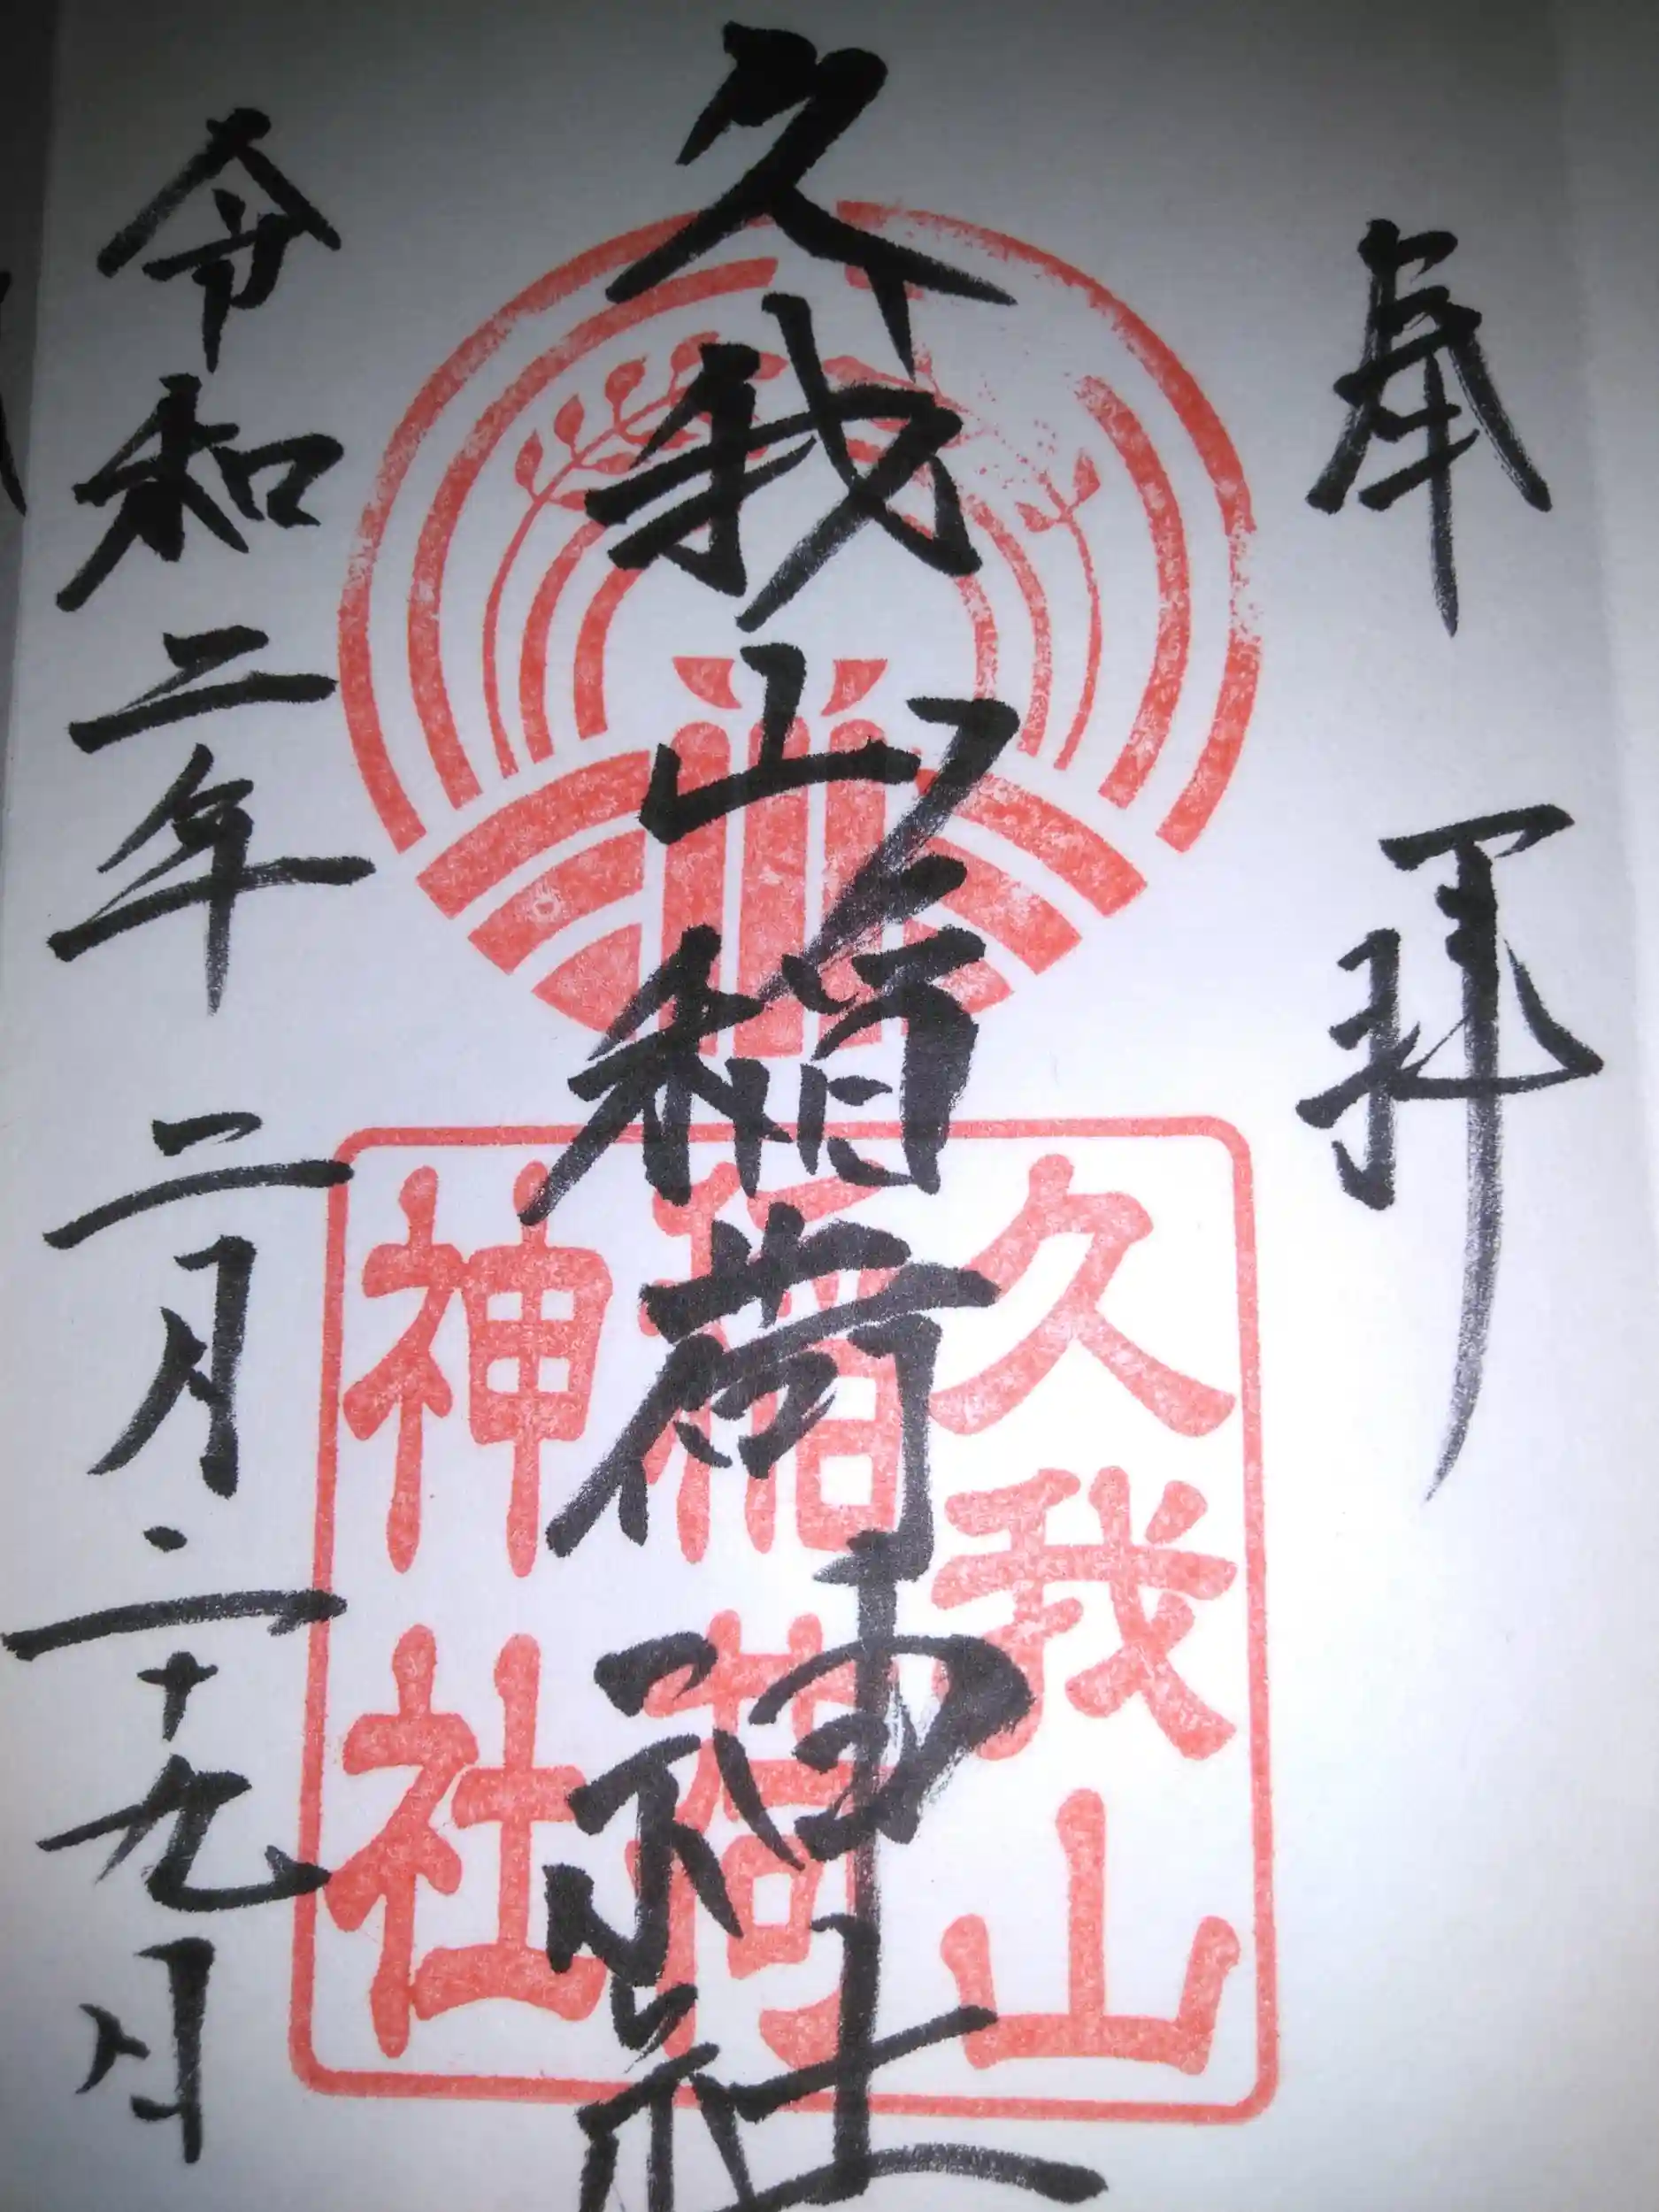 奉拝
久我山稲荷神社
令和二年二月二十九日
久我山
稲荷
神社